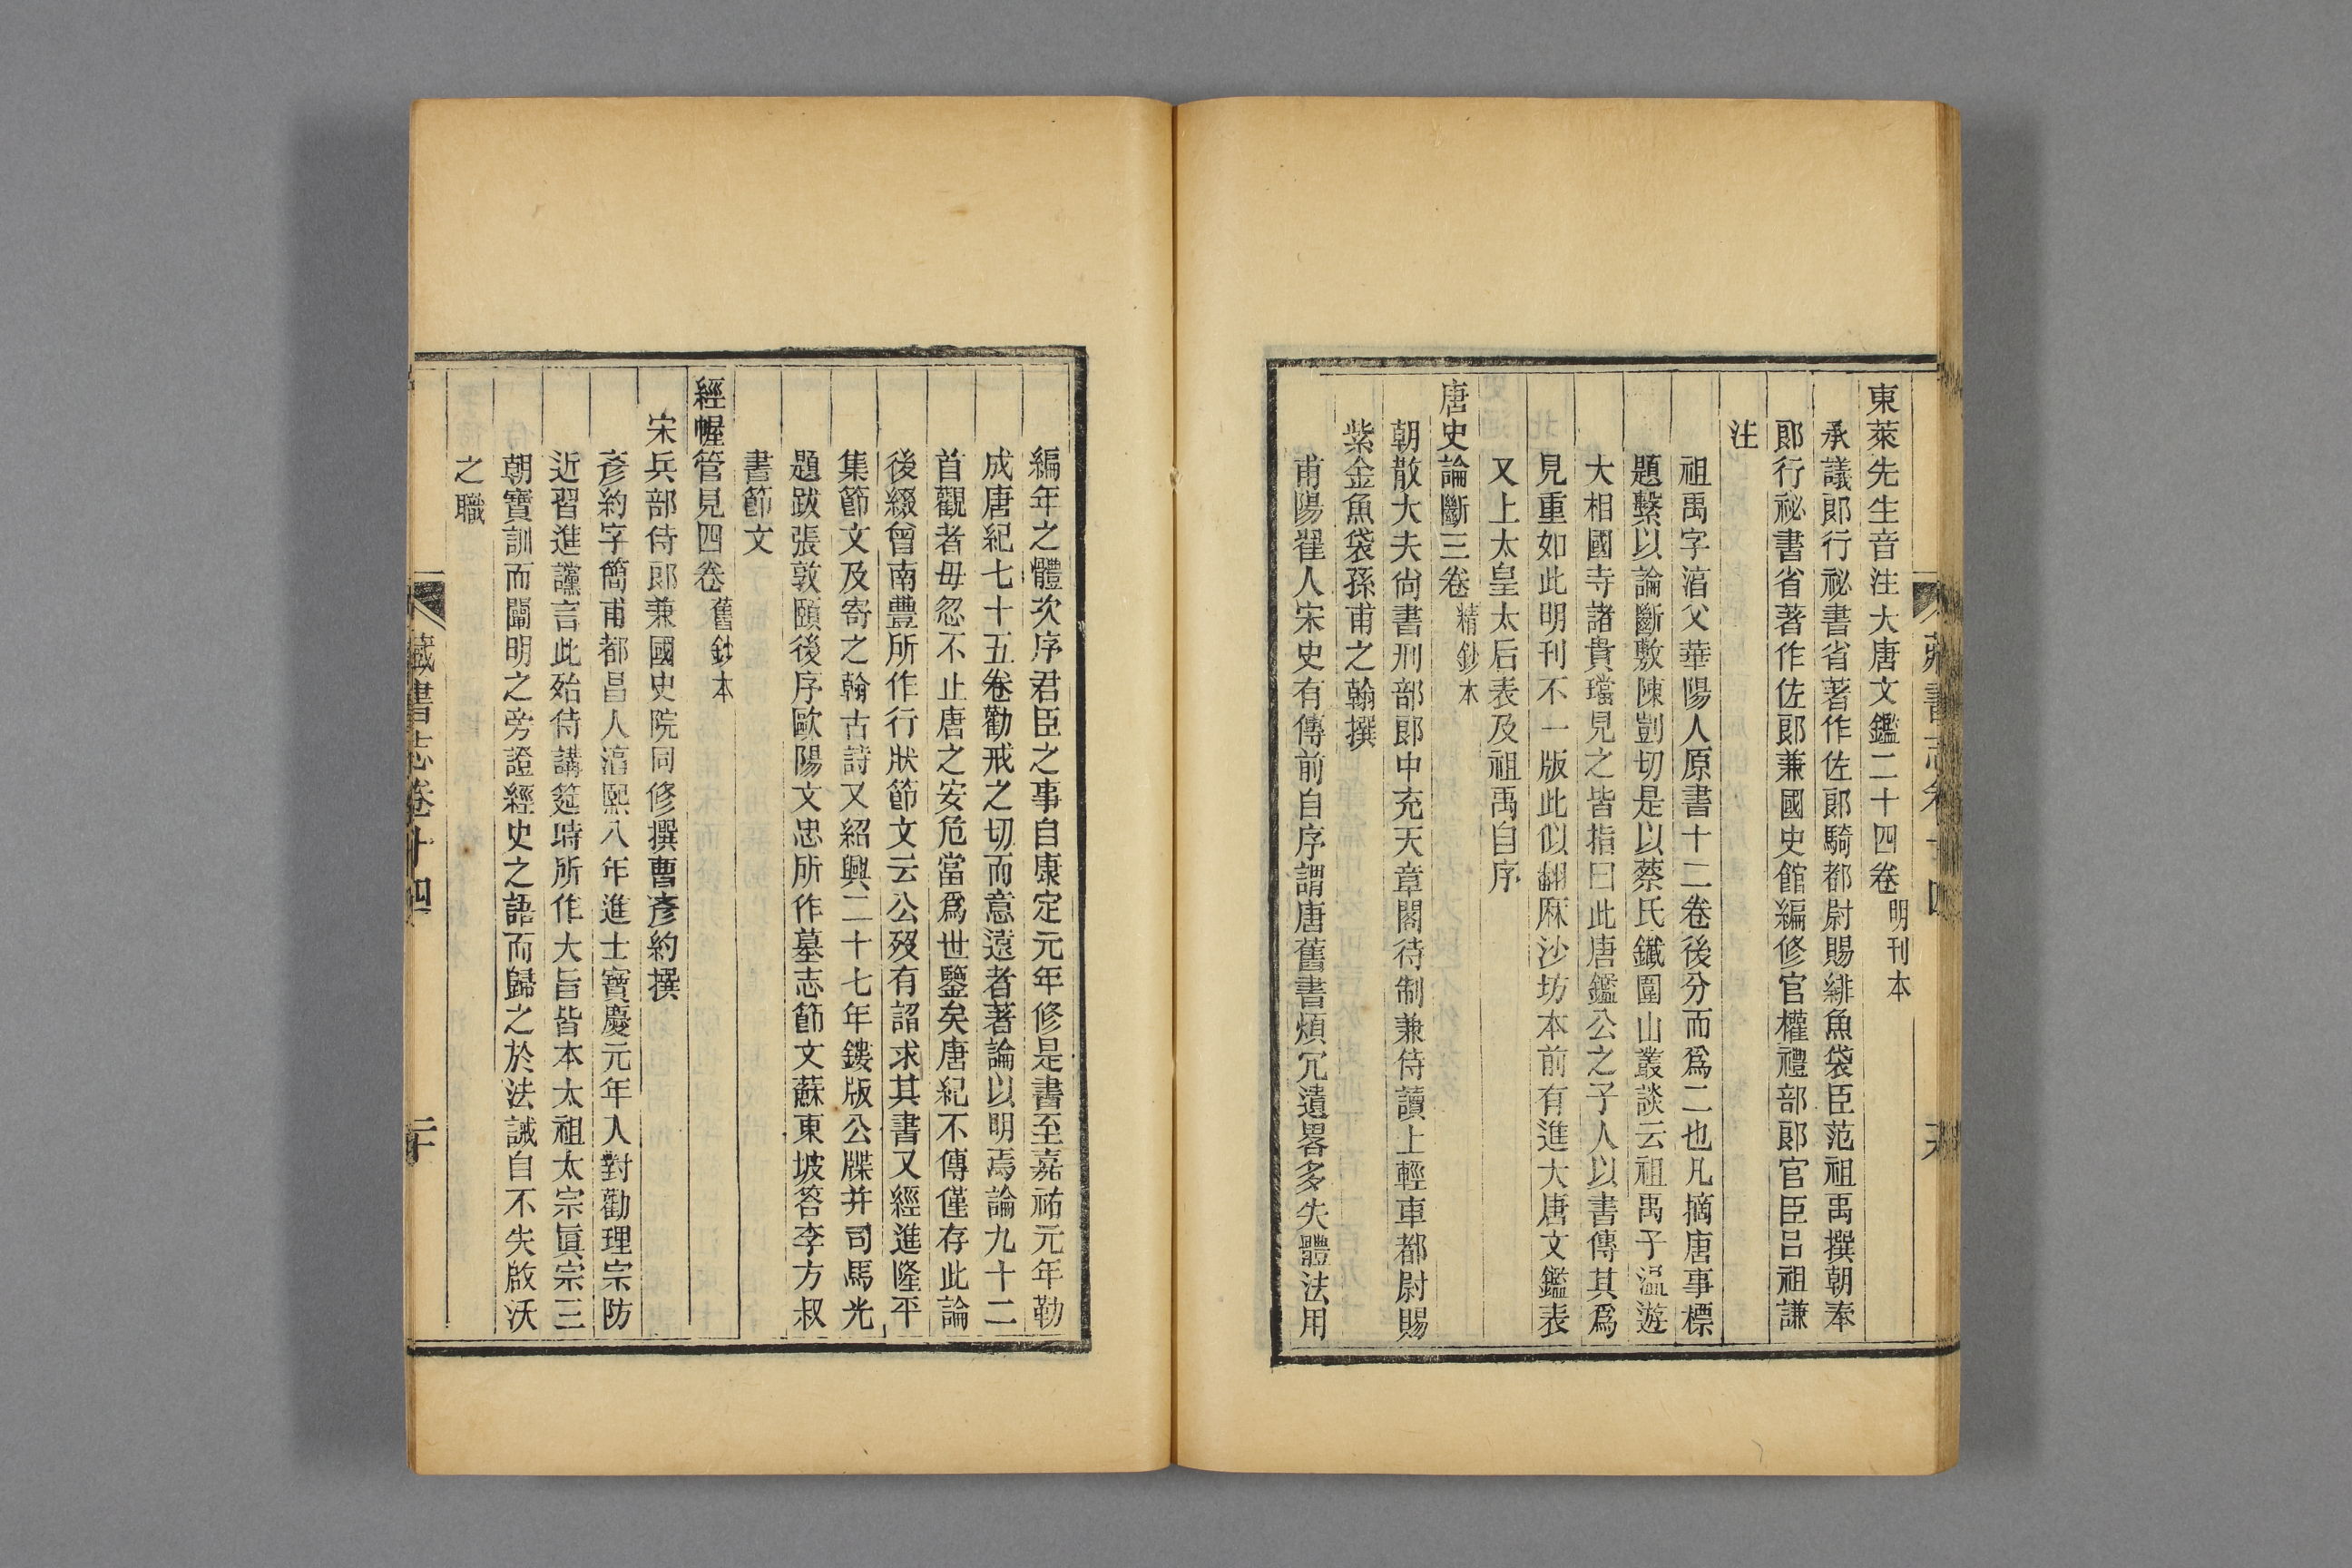 東萊先生音注大唐文鑑二十四卷明刊本
承議郞行祕書省著作佐郞騎都尉賜緋魚袋臣范祖禹撰朝奉
郞行祕書省著作佐郞兼國史館編修官權禮部郞官臣呂祖謙
注
祖禹字淯父華陽人原書十二卷後分而爲二也凡摘唐事標
題繫以論斷敷陳剴切是以蔡氏鐵圍山叢談云祖禹子溫遊
大相國寺諸貴璫見之皆指曰此唐鑑公之子人以書傳其爲
見重如此明刊不一版此似翻麻沙坊本前有進大唐文鑑表
又上太皇太后表及祖禹自序
唐史論斷三卷精鈔本
朝散大夫尙書刑部郞中充天章閣待制兼侍讀上輕車都尉賜
紫金魚袋孫甫之翰撰
甫陽翟人宋史有傳前自序謂唐舊書煩冗遺畧多失體法用
編年之體次序君臣之事自康定元年修是書至嘉祐元年勒
成唐紀七十五卷勸戒之切而意遠者著論以明焉論九十二
首觀者毋忽不止唐之安危當爲世鑒矣唐紀不傳僅存此論
後綴曾南豐所作行狀節文云公歿有詔求其書又經進隆平
集節文及寄之翰古詩又紹興二十七年鏤版公牒并司馬光
題跋張敦頤後序歐陽文忠所作墓志節文蘇東坡答李方叔
書節文
經幄管見四卷舊鈔本
宋兵部侍郞兼國史院同修撰曹彥約撰
彥約字簡甫都昌人淯熙八年進士寶慶元年入對勸理宗防
近習進讜言此殆侍講筵時所作大旨皆本太祖太宗眞宗三
朝寶訓而闡明之旁證經史之語而歸之於法誡自不失啟沃
之職
藏書志卷十四
二十